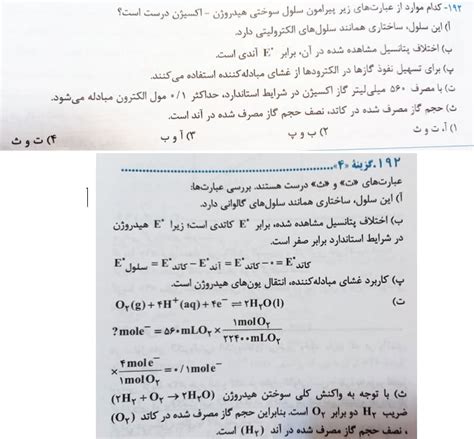 ۱۹۲- کدام موارد از عبارت‌های زیر پیرامون سلول سوختی هیدروژن - اکسیژن درست است؟
آ) این سلول، ساختاری همانند سلول‌های الکترولیتی دارد.
ب) اختلاف پتانسیل مشاهده شده در آن، برابر E° آندی است.
پ) برای تسهیل نفوذ گازها در الکترودها از غشای مبادله‌کننده استفاده می‌کنند.
ت) با مصرف ۵۶۰ میلی‌لیتر گاز اکسیژن در شرایط استاندارد، حداکثر ۰/۱ مول الکترون مبادله می‌شود.
ث) حجم گاز مصرف شده در کاتد، نصف حجم گاز مصرف شده در آند است.
۱) آ، ت و ث ۲) ب و پ ۳) آ و ب ۴) ت و ث
۱۹۲. گزینهٔ «۴»
عبارت‌های «ت» و «ث» درست هستند. بررسی عبارت‌ها:
آ) این سلول، ساختاری همانند سلول‌های گالوانی دارد.
ب) اختلاف پتانسیل مشاهده شده، برابر E° کاتدی است؛ زیرا E° هیدروژن
در شرایط استاندارد برابر صفر است.
E°سلول = E°کاتد − E°آند = E°کاتد − ۰ = E°کاتد
پ) کاربرد غشای مبادله‌کننده، انتقال یون‌های هیدروژن است.
ت) O₂(g) + ۴H⁺(aq) + ۴e⁻ ⇌ ۲H₂O(l)
? mole⁻ = ۵۶۰ mLO₂ × ۱molO₂ / ۲۲۴۰۰mLO₂
× ۴mole⁻ / ۱molO₂ = ۰/۱mole⁻
ث) با توجه به واکنش کلی سوختن هیدروژن (۲H₂ + O₂ → ۲H₂O)
ضریب H₂ دو برابر O₂ است. بنابراین حجم گاز مصرف شده در کاتد (O₂)
، نصف حجم گاز مصرف شده در آند (H₂) است.